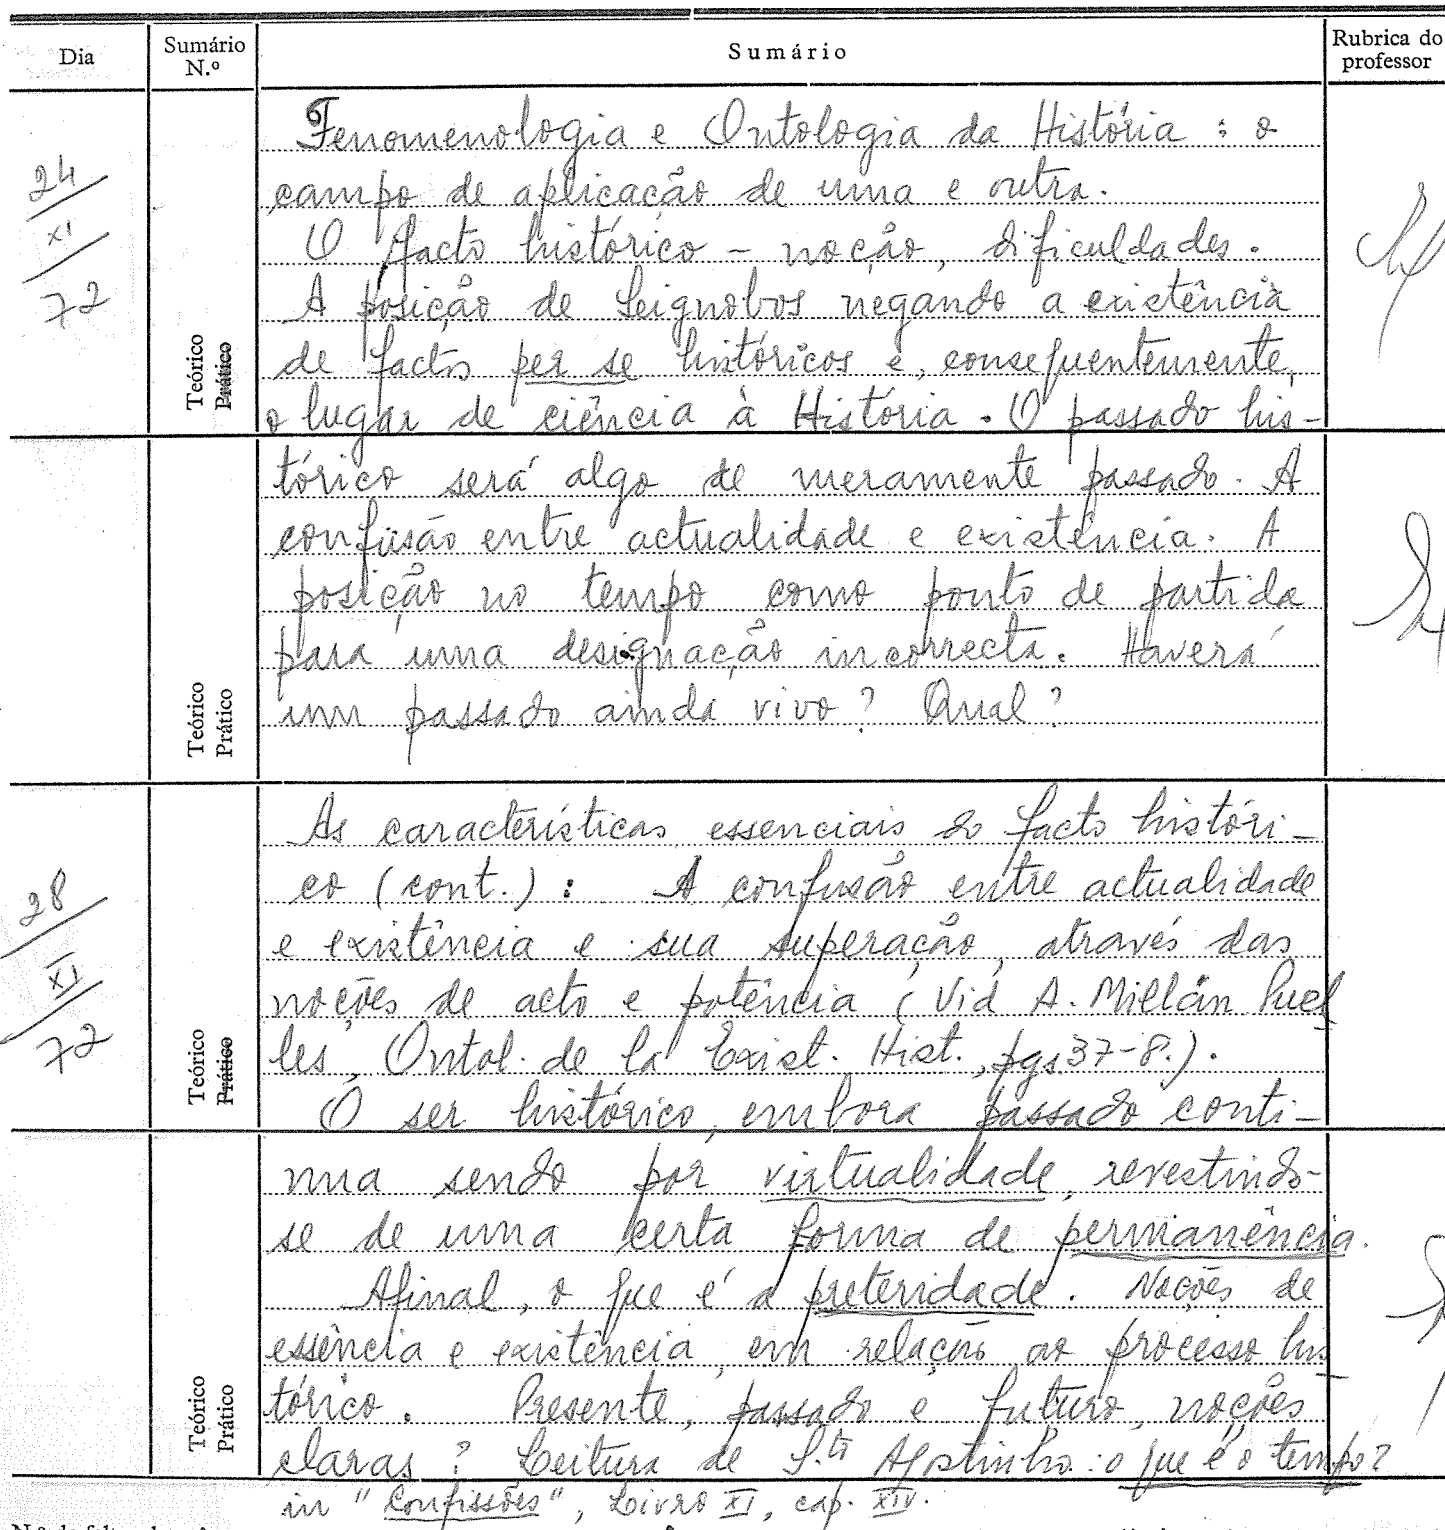 Dia
Sumário N.º
Sumário
Rubrica do professor
24/XI/72
Teórico
Prático
Fenomenologia e Ontologia da História : o
campo de aplicação de uma e outra.
O facto histórico – noção, dificuldades.
A posição de Seignobos negando a existência
de factos per se históricos e, consequentemente,
o lugar de ciência à História. O passado his-
tórico será algo de meramente passado. A
confusão entre actualidade e existência. A
posição no tempo como ponto de partida
para uma designação incorrecta. Haverá
um passado ainda vivo? Qual?
Teórico
Prático
28/XI/72
Teórico
Prático
As características essenciais do facto históri-
co (cont.) : A confusão entre actualidade
e existência e sua superação, através das
noções de acto e potência (Vid A. Millán Puel
les, Ontol. de la Exist. Hist., pgs 37-8.).
O ser histórico, embora passado conti-
nua sendo por virtualidade, revestindo-
se de uma certa forma de permanência.
Afinal, o que é a preteridade. Noções de
essência e existência, em relação ao processo his
tórico. Presente, passado e futuro, noções
claras? Leitura de S.to Agostinho: o que é o tempo?
in "Confissões", Livro XI, cap. XIV.
Teórico
Prático